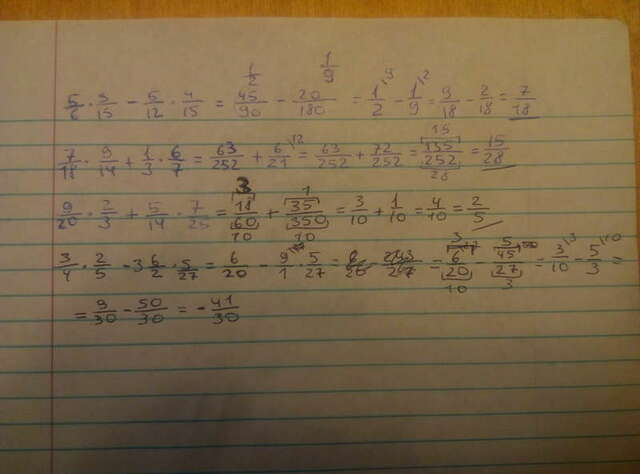 5/6 · 9/15 − 5/12 · 4/15 = 45/90 − 20/180 = 1/2 − 1/9 = 9/18 − 2/18 = 7/18
7/18 · 9/14 + 1/3 · 6/7 = 63/252 + 6/21 = 63/252 + 72/252 = 135/252 = 15/28
9/20 · 2/3 + 5/14 · 7/25 = 18/60 + 35/350 = 3/10 + 1/10 = 4/10 = 2/5
3/4 · 2/5 − 3 6/2 · 5/27 = 6/20 − 9/1 · 5/27 = 6/20 − 45/27 = 3/10 − 5/3 =
= 9/30 − 50/30 = −41/30